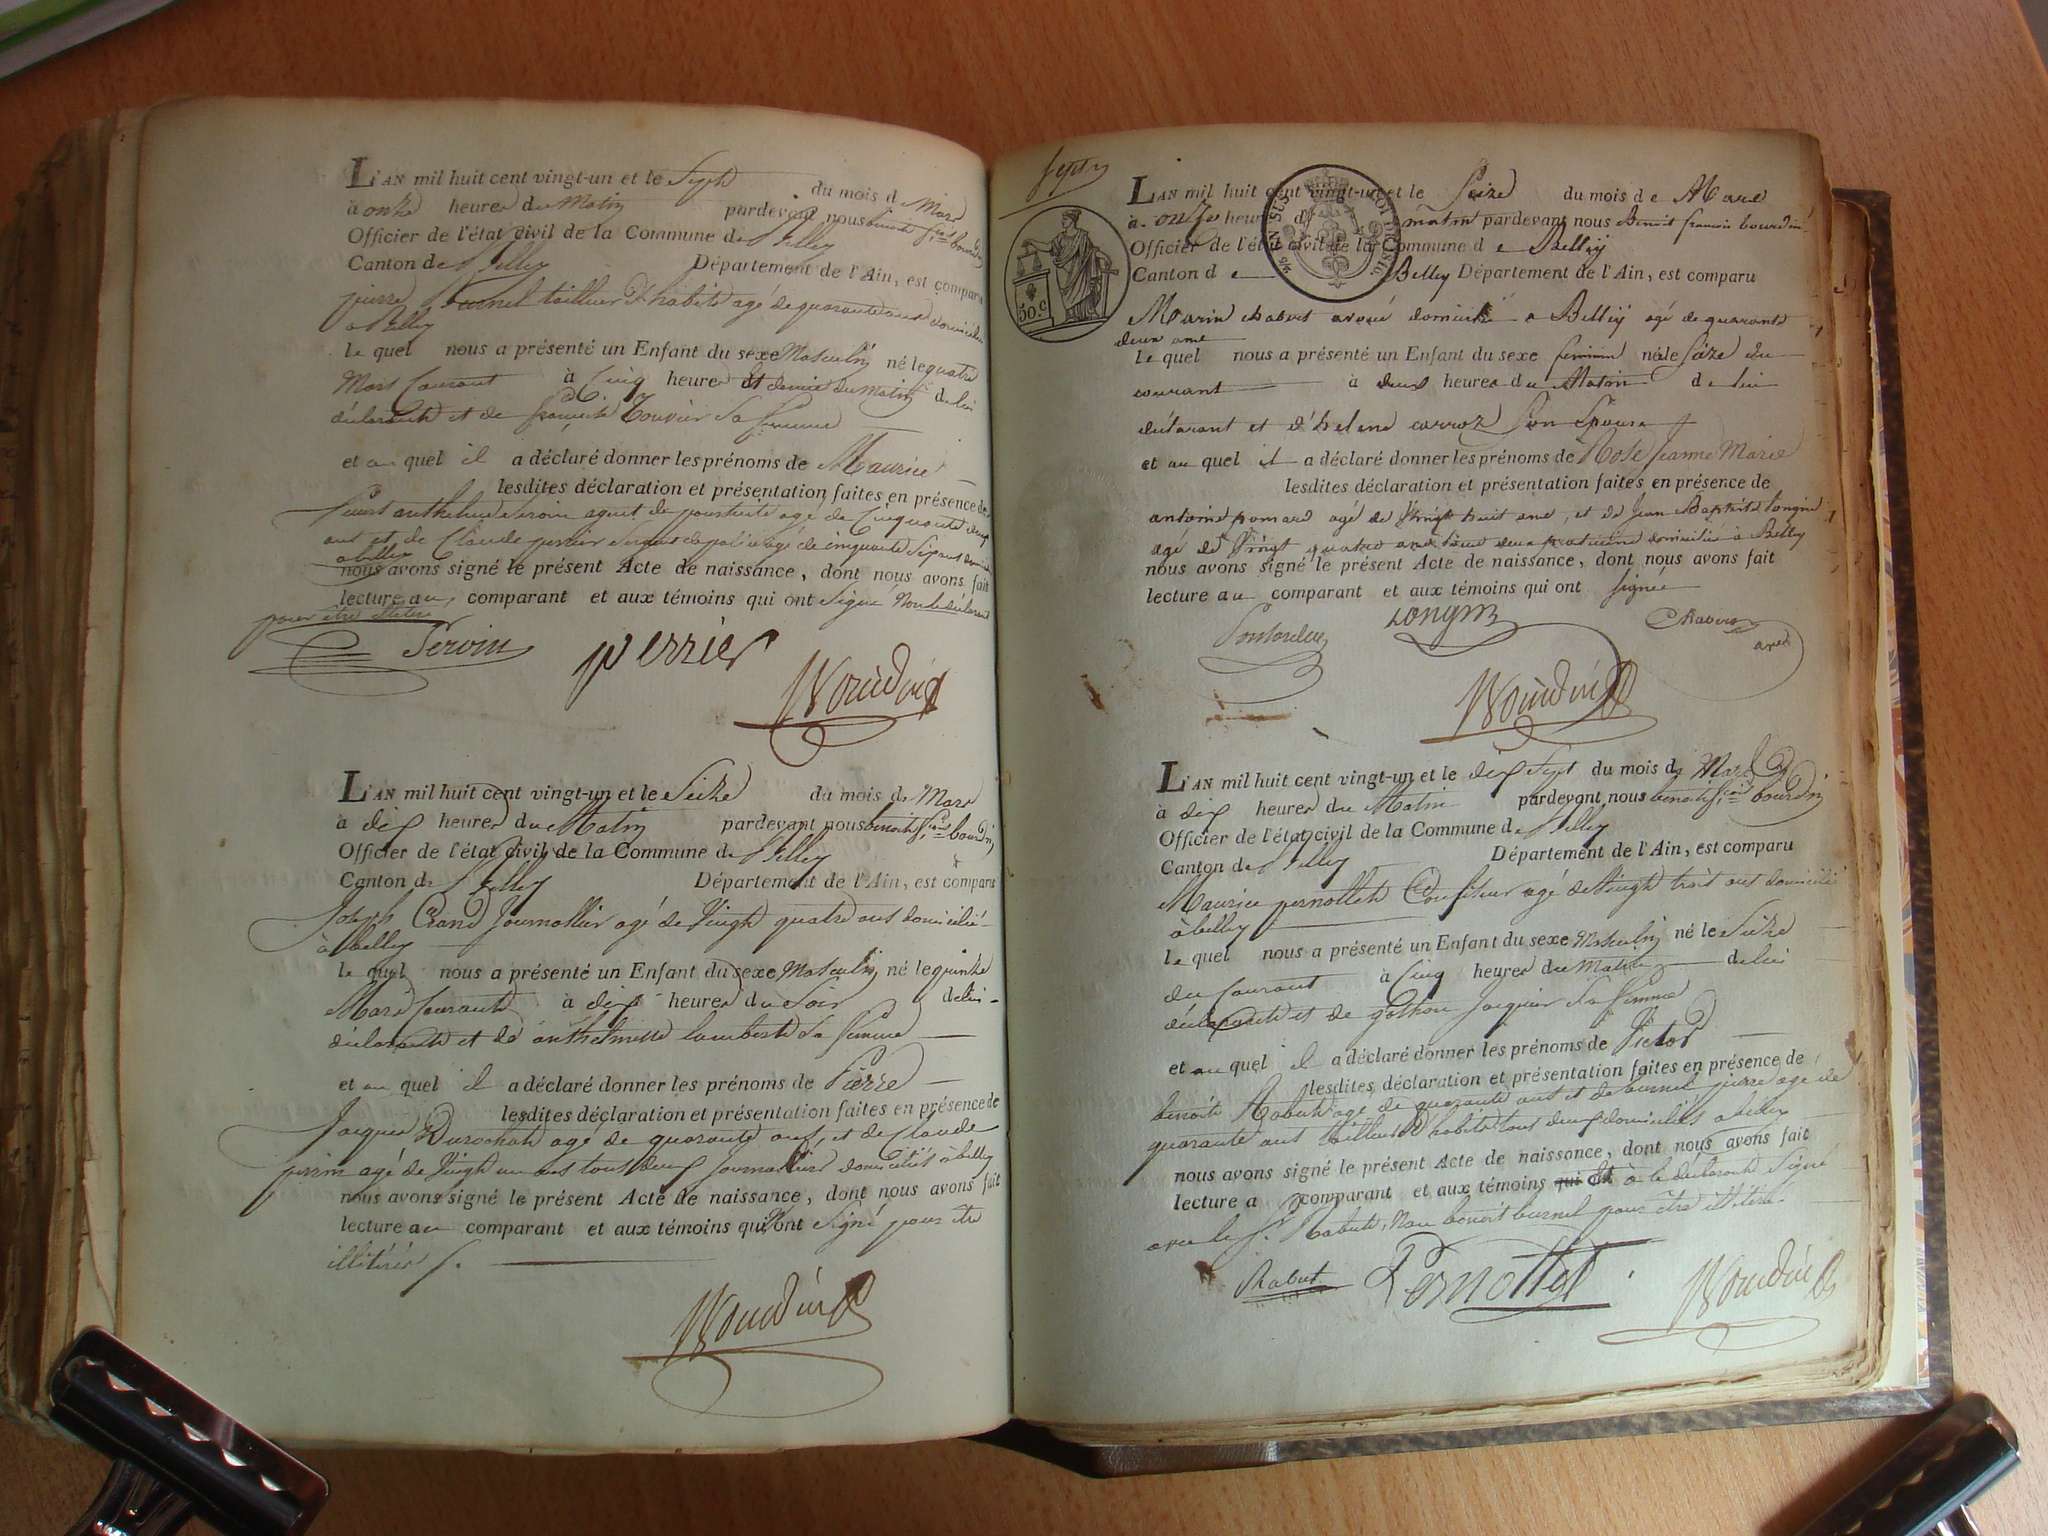 L'AN mil huit cent vingt-un et le Sept du mois de Mars
à onze heures du Matin pardevant nous benoit f.çois bourdin
Officier de l'état civil de la Commune de Belley
Canton de Belley Département de l'Ain, est comparu
pierre burnel tailleur d'habits agé de quarante ans domicilié
à Belley
le quel nous a présenté un Enfant du sexe Masculin né le quatre
Mars Courant à Cinq heures et demie du Matin de lui
déclarant et de françoise Bouvier Sa femme
et au quel il a déclaré donner les prénoms de Maurice
lesdites déclaration et présentation faites en présence de
anthelme Servin agent de poursuite agé de Cinquante deux
ans et de Claude perrier Sergent de police agé de cinquante Sept ans
à belley
nous avons signé le présent Acte de naissance, dont nous avons fait
lecture au comparant et aux témoins qui ont Signé Non le déclarant
pour être illitéré
Servin perrier
Bourdin
L'AN mil huit cent vingt-un et le Seize du mois de Mars
à dix heures du Matin pardevant nous benoit f.çois bourdin
Officier de l'état civil de la Commune de Belley
Canton de Belley Département de l'Ain, est comparu
Joseph Grand Journallier agé de Vingt quatre ans domicilié
à belley
le quel nous a présenté un Enfant du sexe Masculin né le quinze
Mars Courant à dix heures du Soir de lui
déclarant et de anthelmette lambert Sa femme
et au quel il a déclaré donner les prénoms de Pierre
lesdites déclaration et présentation faites en présence de
Jacques Durochat agé de quarante ans, et de Claude
perrin agé de Vingt un ans tous deux Journalliers domiciliés à belley
nous avons signé le présent Acte de naissance, dont nous avons fait
lecture au comparant et aux témoins qui N'ont Signé pour être
illitérés
Bourdin
Sept
50.C
L'AN mil huit cent vingt-un et le Seize du mois de Mars
à onze heures du matin pardevant nous Benoit françois bourdin
Officier de l'état civil de la Commune de Belley
Canton de Belley Département de l'Ain, est comparu
Marin Chabert avoué domicilié a Belley agé de quarante
deux ans
le quel nous a présenté un Enfant du sexe feminin né le Seize du
courant à deux heures du Matin de lui
déclarant et d'helene carroz Son Epouse
et au quel il a déclaré donner les prénoms de Rose Jeanne Marie
lesdites déclaration et présentation faites en présence de
antoine agé de Vingt huit ans, et de Jean Baptiste Longin
agé de Vingt quatre ans tous deux domiciliés à Belley
nous avons signé le présent Acte de naissance, dont nous avons fait
lecture au comparant et aux témoins qui ont Signé
Longin
Bourdin
L'AN mil huit cent vingt-un et le dix Sept du mois de Mars
à dix heures du Matin pardevant nous benoit f.çois bourdin
Officier de l'état civil de la Commune de Belley
Canton de Belley Département de l'Ain, est comparu
Maurice pernollet Confiseur agé de Vingt trois ans domicilié
à belley
le quel nous a présenté un Enfant du sexe Masculin né le Seize
du Courant à Cinq heures du Matin de lui
déclarant et de gothon Jacquier Sa femme
et au quel il a déclaré donner les prénoms de Victor
lesdites déclaration et présentation faites en présence de
benoit Rabut agé de quarante ans et de burnel pierre agé de
quarante ans tailleur d'habits tous deux domiciliés à belley
nous avons signé le présent Acte de naissance, dont nous avons fait
lecture a comparant et aux témoins qui ont à le déclarant Signé
avec le S.r Rabut, Non burnel pour être illitéré
Rabut Pernollet Bourdin